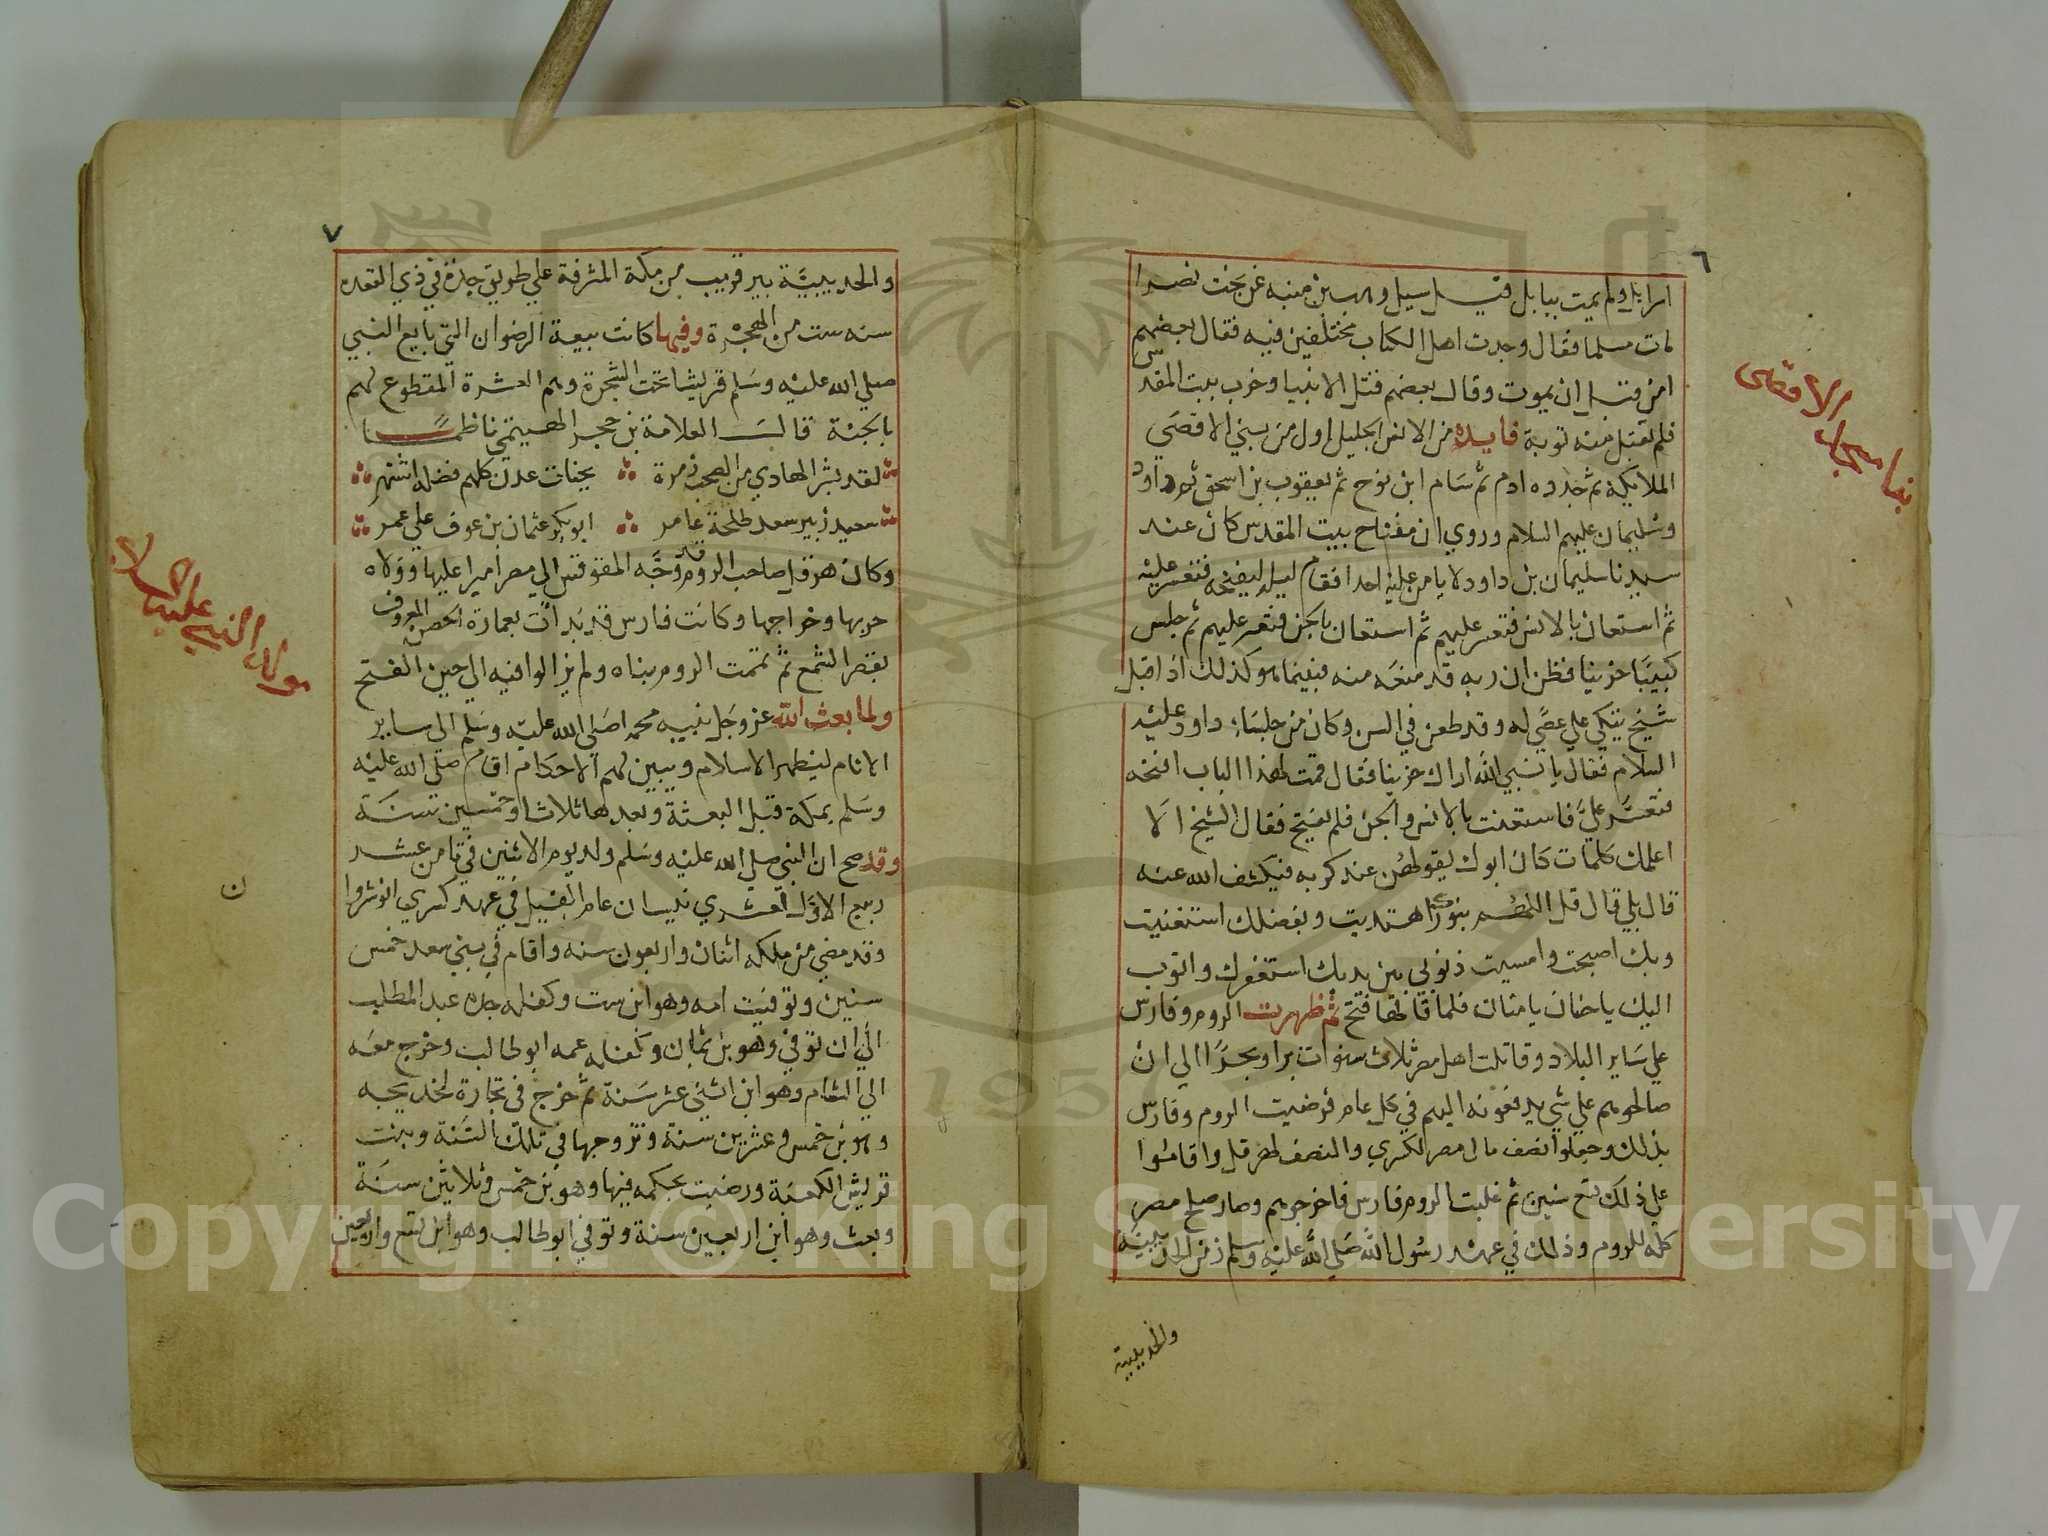 ٦
اسرايل ولم يمت ببابل قيل سيل وهب بن منبه عن بخت نصر ا
مات مسلما فقال وجدت اهل الكتاب مختلفين فيه فقال بعضهم
امن قبل ان يموت وقال بعضهم قتل الانبيا وخرب بيت المقدس
فلم تقبل منه توبة فايدة من الانس الجليل اول من بني الاقصي
الملايكة ثم جدده ادم ثم سام ابن نوح ثم يعقوب بن اسحق ثم داود
وسليمان عليهم السلام وروي ان مفتاح بيت المقدس كان عند
سيدنا سليمان بن داود لا يامن عليه احدا فقام ليلة ليفتحه فتعسر عليه
ثم استعان بالانس فتعسر عليهم ثم استعان بالجن فتعسر عليهم ثم جلس
كييبا حزينا فظن ان ربه قد منعه منه فبينما هو كذلك اذ اقبل
شيخ يتكي علي عصي له وقد طعن في السن وكان من جلساء داود عليه
السلام فقال يا نبي الله اراك حزينا فقال قمت لهذا الباب افتحه
فتعسر علي فاستعنت بالانس والجن فلم يفتح فقال الشيخ الا
اعلمك كلمات كان ابوك يقولهن عند كربه فيكشف الله عنه
قال بلي قال قل اللهم بنورك اهتديت وبفضلك استغنيت
وبك اصبحت وامسيت ذنوبي بين يديك استغفرك واتوب
اليك يا حنان يا منان فلما قالها فتح ثم ظهرت الروم وفارس
علي ساير البلاد وقاتلت اهل مصر ثلاث سنوات برا وبحرا الي ان
صالحوهم علي شي يدفعونه اليهم في كل عام فرضيت الروم وفارس
بذلك وجعلوا نصف مال مصر لكسري والنصف لهرقل واقاموا
علي ذلك تسع سنين ثم غلبت الروم فارس فاخرجوهم وصار صلح مصر
كله للروم وذلك في عهد رسول الله صلي الله عليه وسلم زمن الحديبية
والحديبية
بنا مسجد الاقصى
٧
والحديبية بير قريب من مكة المشرفة علي طريق جدة في ذي القعدة
سنه ست من الهجرة وفيها كانت بيعة الرضوان التي بايع النبي
صلي الله عليه وسلم قريشا تحت الشجرة وهم العشرة المقطوع لهم
بالجنة قال العلامة بن حجر الهيتمي ناظما
لقد بشر الهادي من الصحب زمرة بجنات عدن كلهم فضله اشتهر
سعيد زبير سعد طلحة عامر ابو بكر عثمان بن عوف علي عمر
وكان هرقل صاحب الروم قد وجه المقوقس الي مصر اميرا عليها وولاه
حربها وخراجها وكانت فارس قد بدات بعمارة الحصن المعروف
بقصر الشمع ثم تممت الروم بناه ولم يزالوا فيه الي حين الفتح
ولما بعث الله عز وجل نبيه محمدا صلي الله عليه وسلم الي ساير
الانام ليظهر الاسلام ويبين لهم الاحكام اقام صلي الله عليه
وسلم بمكة قبل البعثة وبعدها ثلاثا وخمسين سنة
وقد صح ان النبي صلي الله عليه وسلم ولد يوم الاثنين في ثامن عشر
ربيع الاول لعشري نيسان عام الفيل في عهد كسري انوشروان
وقد مضي من ملكه اثنان واربعون سنه واقام في بني سعد خمس
سنين وتوفيت امه وهو ابن ست وكفله جده عبد المطلب
الي ان توفي وهو بن ثمان وكفله عمه ابو طالب وخرج معه
الي الشام وهو ابن اثني عشر سنة ثم خرج في تجارة لخديجه
وهو بن خمس وعشرين سنة وتزوجها في تلك السنة وبنت
قريش الكعبة ورضيت بحكمه فيها وهو بن خمس وثلاثين سنة
وبعث وهو ابن اربعين سنة وتوفي ابو طالب وهو ابن تسع واربعين
مولد النبي عليه السلام
Copyright © King Saud University
1957